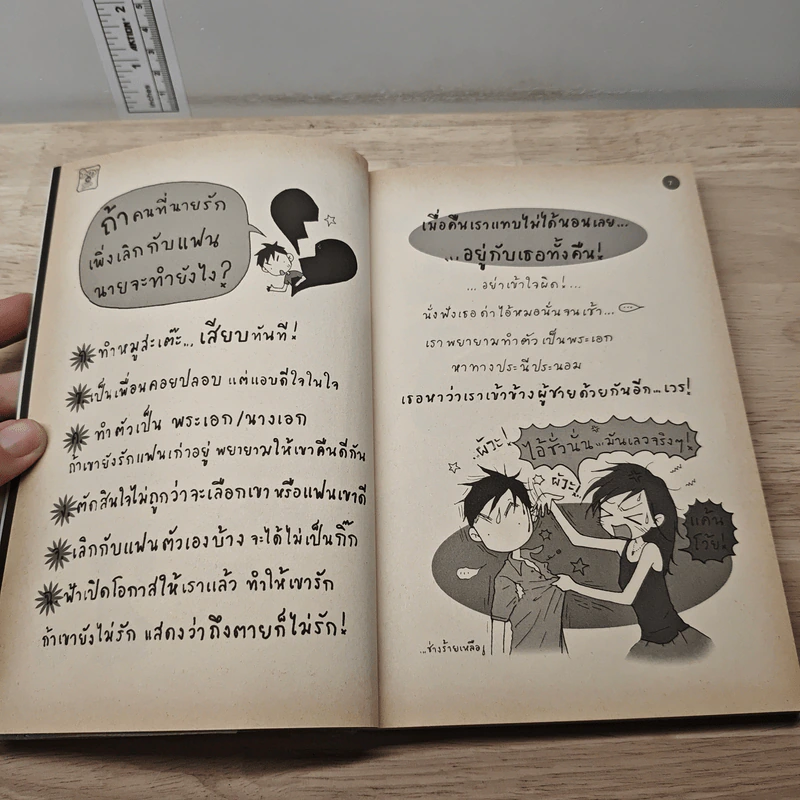 ถ้าคนที่นายรัก
เพิ่งเลิกกับแฟน
นายจะทำยังไง?
ทำหมูสะเต๊ะ... เสียบทันที!
เป็นเพื่อนคอยปลอบ แต่แอบดีใจในใจ
ทำตัวเป็น พระเอก/นางเอก
ถ้าเขายังรักแฟนเก่าอยู่ พยายามให้เขาคืนดีกัน
ตัดสินใจไม่ถูกว่าจะเลือกเขา หรือแฟนเขาดี
เลิกกับแฟนตัวเองบ้าง จะได้ไม่เป็นกิ๊ก
ฟ้าเปิดโอกาสให้เราแล้ว ทำให้เขารัก
ถ้าเขายังไม่รัก แสดงว่าถึงตายก็ไม่รัก!
7
เมื่อคืนเราแทบไม่ได้นอนเลย...
...อยู่กับเธอทั้งคืน!
...อย่าเข้าใจผิด!...
นั่งฟังเธอด่าไอ้หมอนั่นจนเช้า...
เราพยายามทำตัวเป็นพระเอก
หาทางประนีประนอม
เธอหาว่าเราเข้าข้างผู้ชายด้วยกันอีก...เวร!
..ผัวะ!
ไอ้ชั่วนั่น...มันเลวจริงๆ!
ผัวะ..
แค้น
โว้ย!
...ช่างร้ายเหลือ!
inches 1 2
ACTION